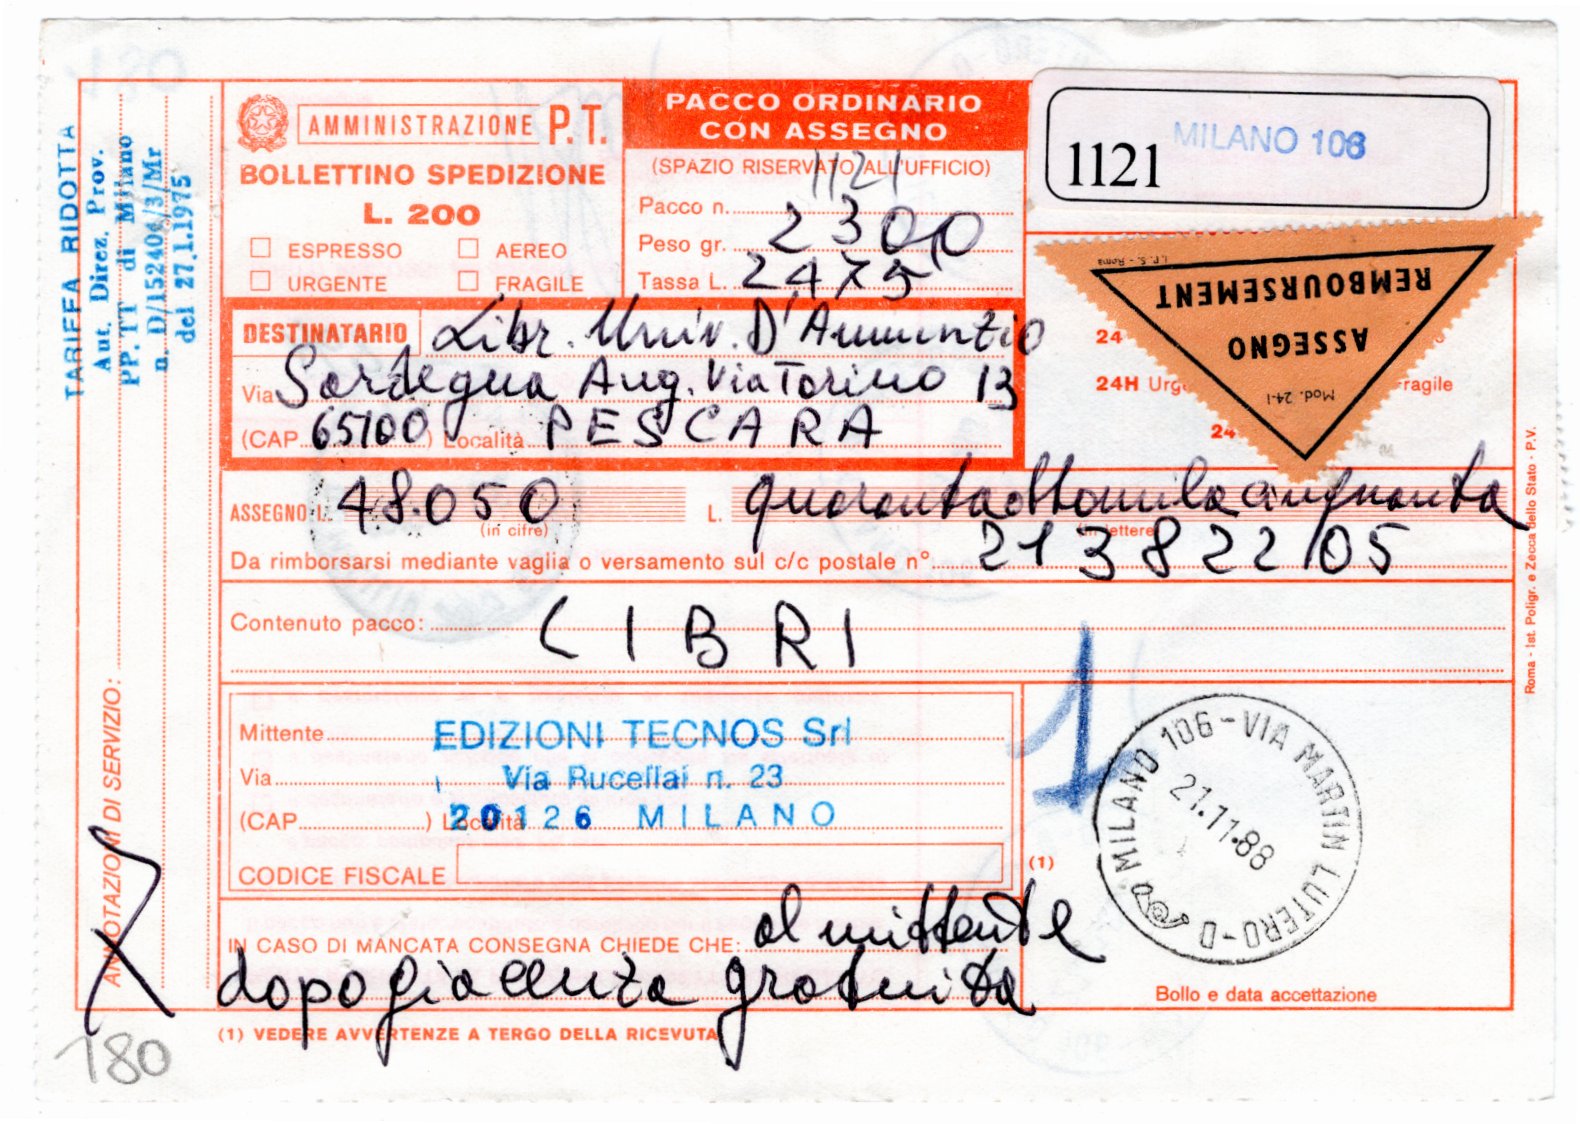 AMMINISTRAZIONE P.T.
BOLLETTINO SPEDIZIONE
L. 200
ESPRESSO AEREO
URGENTE FRAGILE
PACCO ORDINARIO
CON ASSEGNO
(SPAZIO RISERVATO ALL'UFFICIO)
1121
Pacco n.
Peso gr. 2300
Tassa L. 2475
1121 MILANO 106
REMBOURSEMENT
ASSEGNO
Mod. 24-I
I. P. S. - Roma
24
24H Urg Fragile
24
DESTINATARIO Libr. Univ. D'Annunzio
Via Sardegna Ang. Via Torino 13
(CAP 65100) Località PESCARA
ASSEGNO L. 48.050 L. quarantaottomilacinquanta
(in cifre) lettere
Da rimborsarsi mediante vaglia o versamento sul c/c postale n° 21382205
Contenuto pacco: LIBRI
Mittente EDIZIONI TECNOS Srl
Via Via Rucellai n. 23
(CAP ) Località 20126 MILANO
CODICE FISCALE
(1)
1
MILANO 106 - VIA MARTIN LUTERO - D
21.11.88
IN CASO DI MANCATA CONSEGNA CHIEDE CHE: al mittente
dopo giacenza gratuita
Bollo e data accettazione
(1) VEDERE AVVERTENZE A TERGO DELLA RICEVUTA
TARIFFA RIDOTTA
Aut. Direz. Prov.
PP. TT di Milano
n. D/152404/3/Mr
del 27.1.1975
ANNOTAZIONI DI SERVIZIO:
180
Roma - Ist. Poligr. e Zecca dello Stato - P.V.